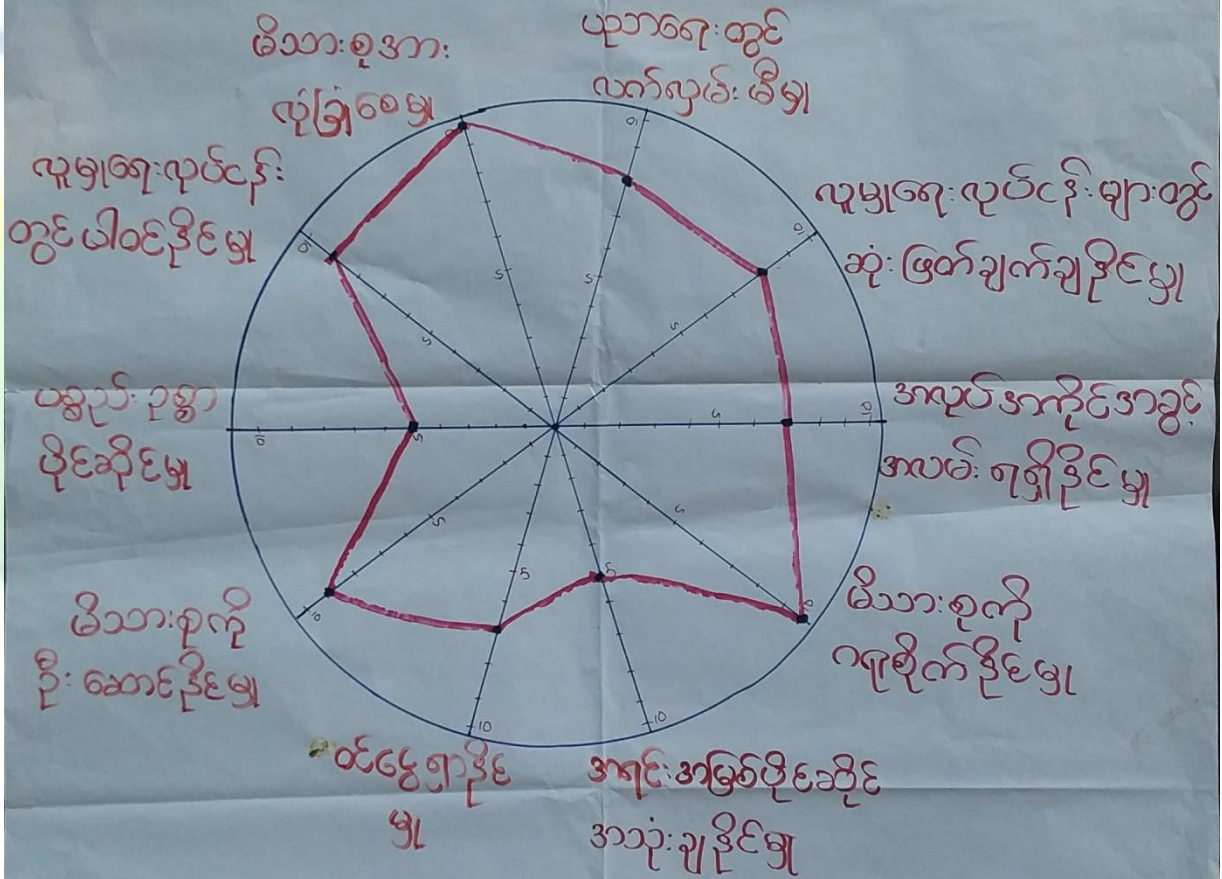 မိသားစုအား
လုံခြုံစေမှု
ပညာရေးတွင်
လက်လှမ်းမီမှု
လူမှုရေးလုပ်ငန်းများတွင်
ဆုံးဖြတ်ချက်ချနိုင်မှု
အလုပ်အကိုင်အခွင့်
အလမ်းရရှိနိုင်မှု
မိသားစုကို
ဂရုစိုက်နိုင်မှု
အရင်းအမြစ်ပိုင်ဆိုင်
အသုံးချနိုင်မှု
ဝင်ငွေရှာနိုင်
မှု
မိသားစုကို
ဦးဆောင်နိုင်မှု
ပစ္စည်းဥစ္စာ
ပိုင်ဆိုင်မှု
လူမှုရေးလုပ်ငန်း
တွင်ပါဝင်နိုင်မှု
10
5
10
5
10
5
10
5
5
10
5
10
5
10
5
10
5
5